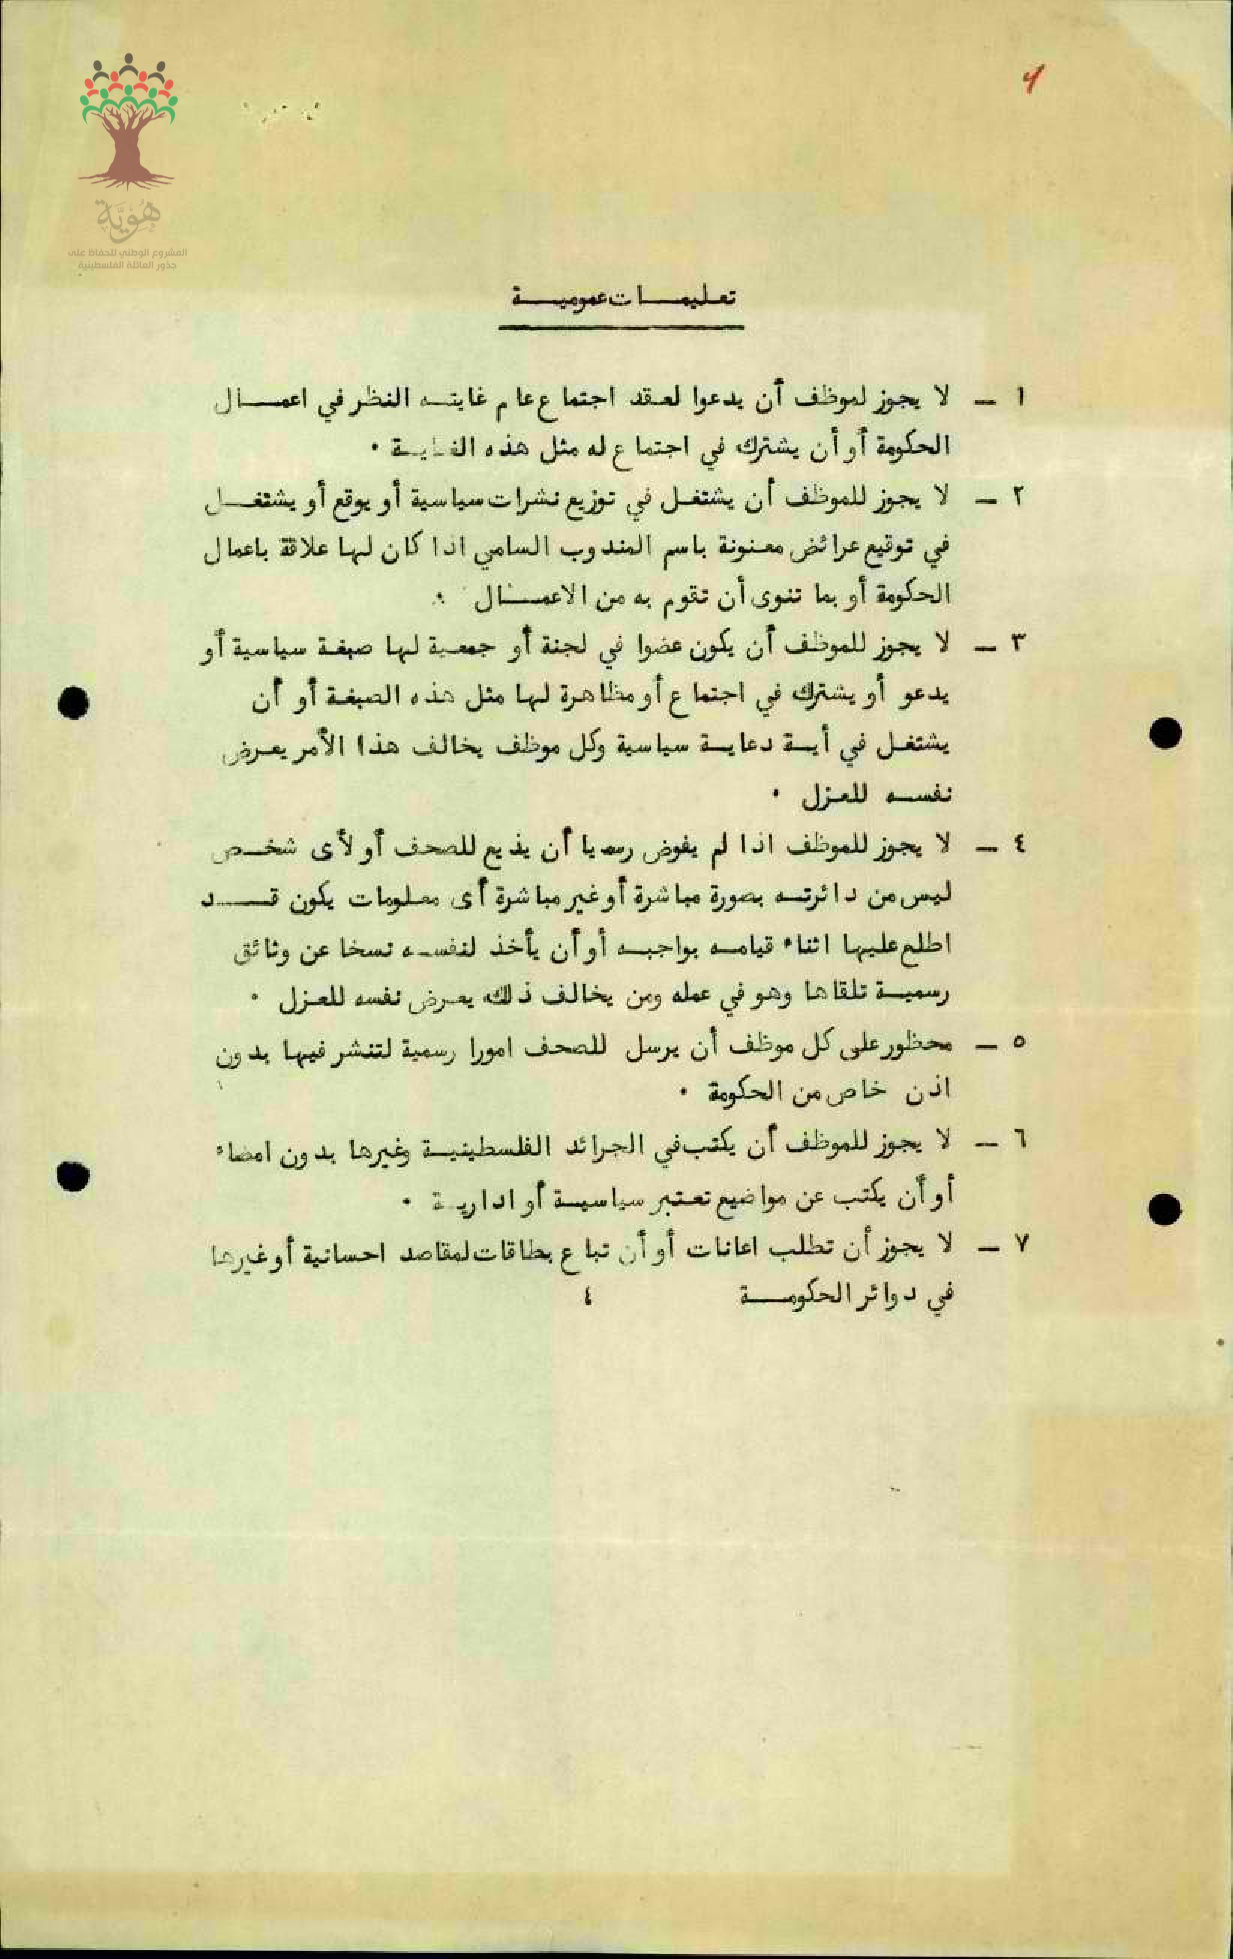 هُوِيَّة
المشروع الوطني للحفاظ على
جذور العائلة الفلسطينية
تعليمات عمومية
١ - لا يجوز لموظف أن يدعوا لعقد اجتماع عام غايته النظر في اعمال
الحكومة أو أن يشترك في اجتماع له مثل هذه الغاية ٠
٢ - لا يجوز للموظف أن يشتغل في توزيع نشرات سياسية أو يوقع أو يشتغل
في توقيع عرائض معنونة باسم المندوب السامي اذا كان لها علاقة باعمال
الحكومة أو بما تنوى أن تقوم به من الاعمال ٠
٣ - لا يجوز للموظف أن يكون عضوا في لجنة أو جمعية لها صبغة سياسية أو
يدعو أو يشترك في اجتماع أو مظاهرة لها مثل هذه الصبغة أو أن
يشتغل في أية دعاية سياسية وكل موظف يخالف هذا الأمر يعرض
نفسه للعزل ٠
٤ - لا يجوز للموظف اذا لم يفوض رسميا أن يذيع للصحف أو لأى شخص
ليس من دائرته بصورة مباشرة أو غير مباشرة أى معلومات يكون قد
اطلع عليها اثناء قيامه بواجبه أو أن يأخذ لنفسه نسخا عن وثائق
رسمية تلقاها وهو في عمله ومن يخالف ذلك يعرض نفسه للعزل ٠
٥ - محظور على كل موظف أن يرسل للصحف امورا رسمية لتنشر فيها بدون
اذن خاص من الحكومة ٠
٦ - لا يجوز للموظف أن يكتب في الجرائد الفلسطينية وغيرها بدون امضاء
أو أن يكتب عن مواضيع تعتبر سياسية أو ادارية ٠
٧ - لا يجوز أن تطلب اعانات أو أن تباع بطاقات لمقاصد احسانية أو غيرها
في دوائر الحكومة ٤